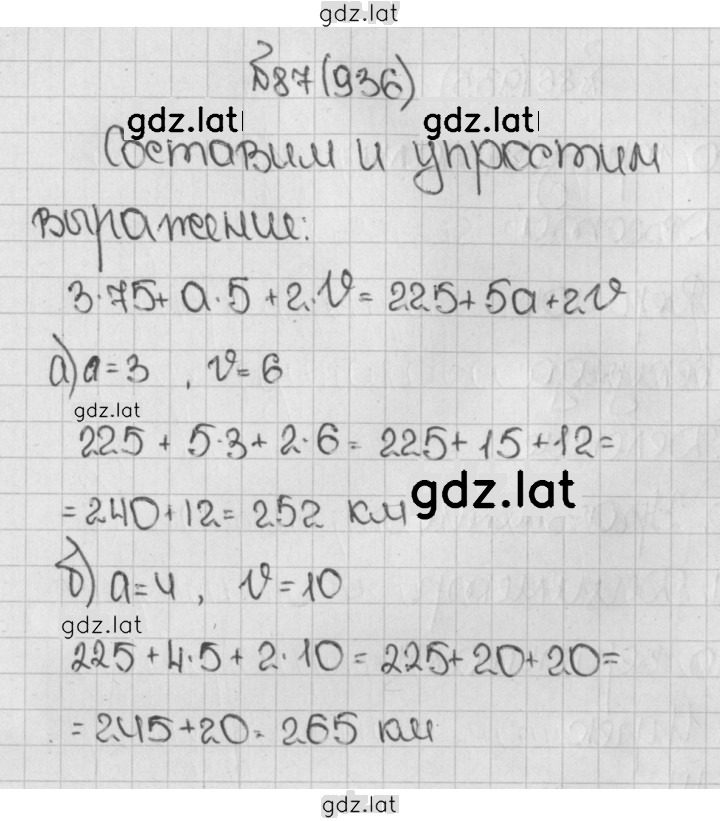 gdz.lat
№87(936)
gdz.lat gdz.lat
Составим и упростим
выражение:
3·75+a·5+2·v=225+5a+2v
а) a=3, v=6
gdz.lat
225+5·3+2·6=225+15+12=
=240+12=252 км
gdz.lat
б) a=4, v=10
gdz.lat
225+4·5+2·10=225+20+20=
=245+20=265 км
gdz.lat